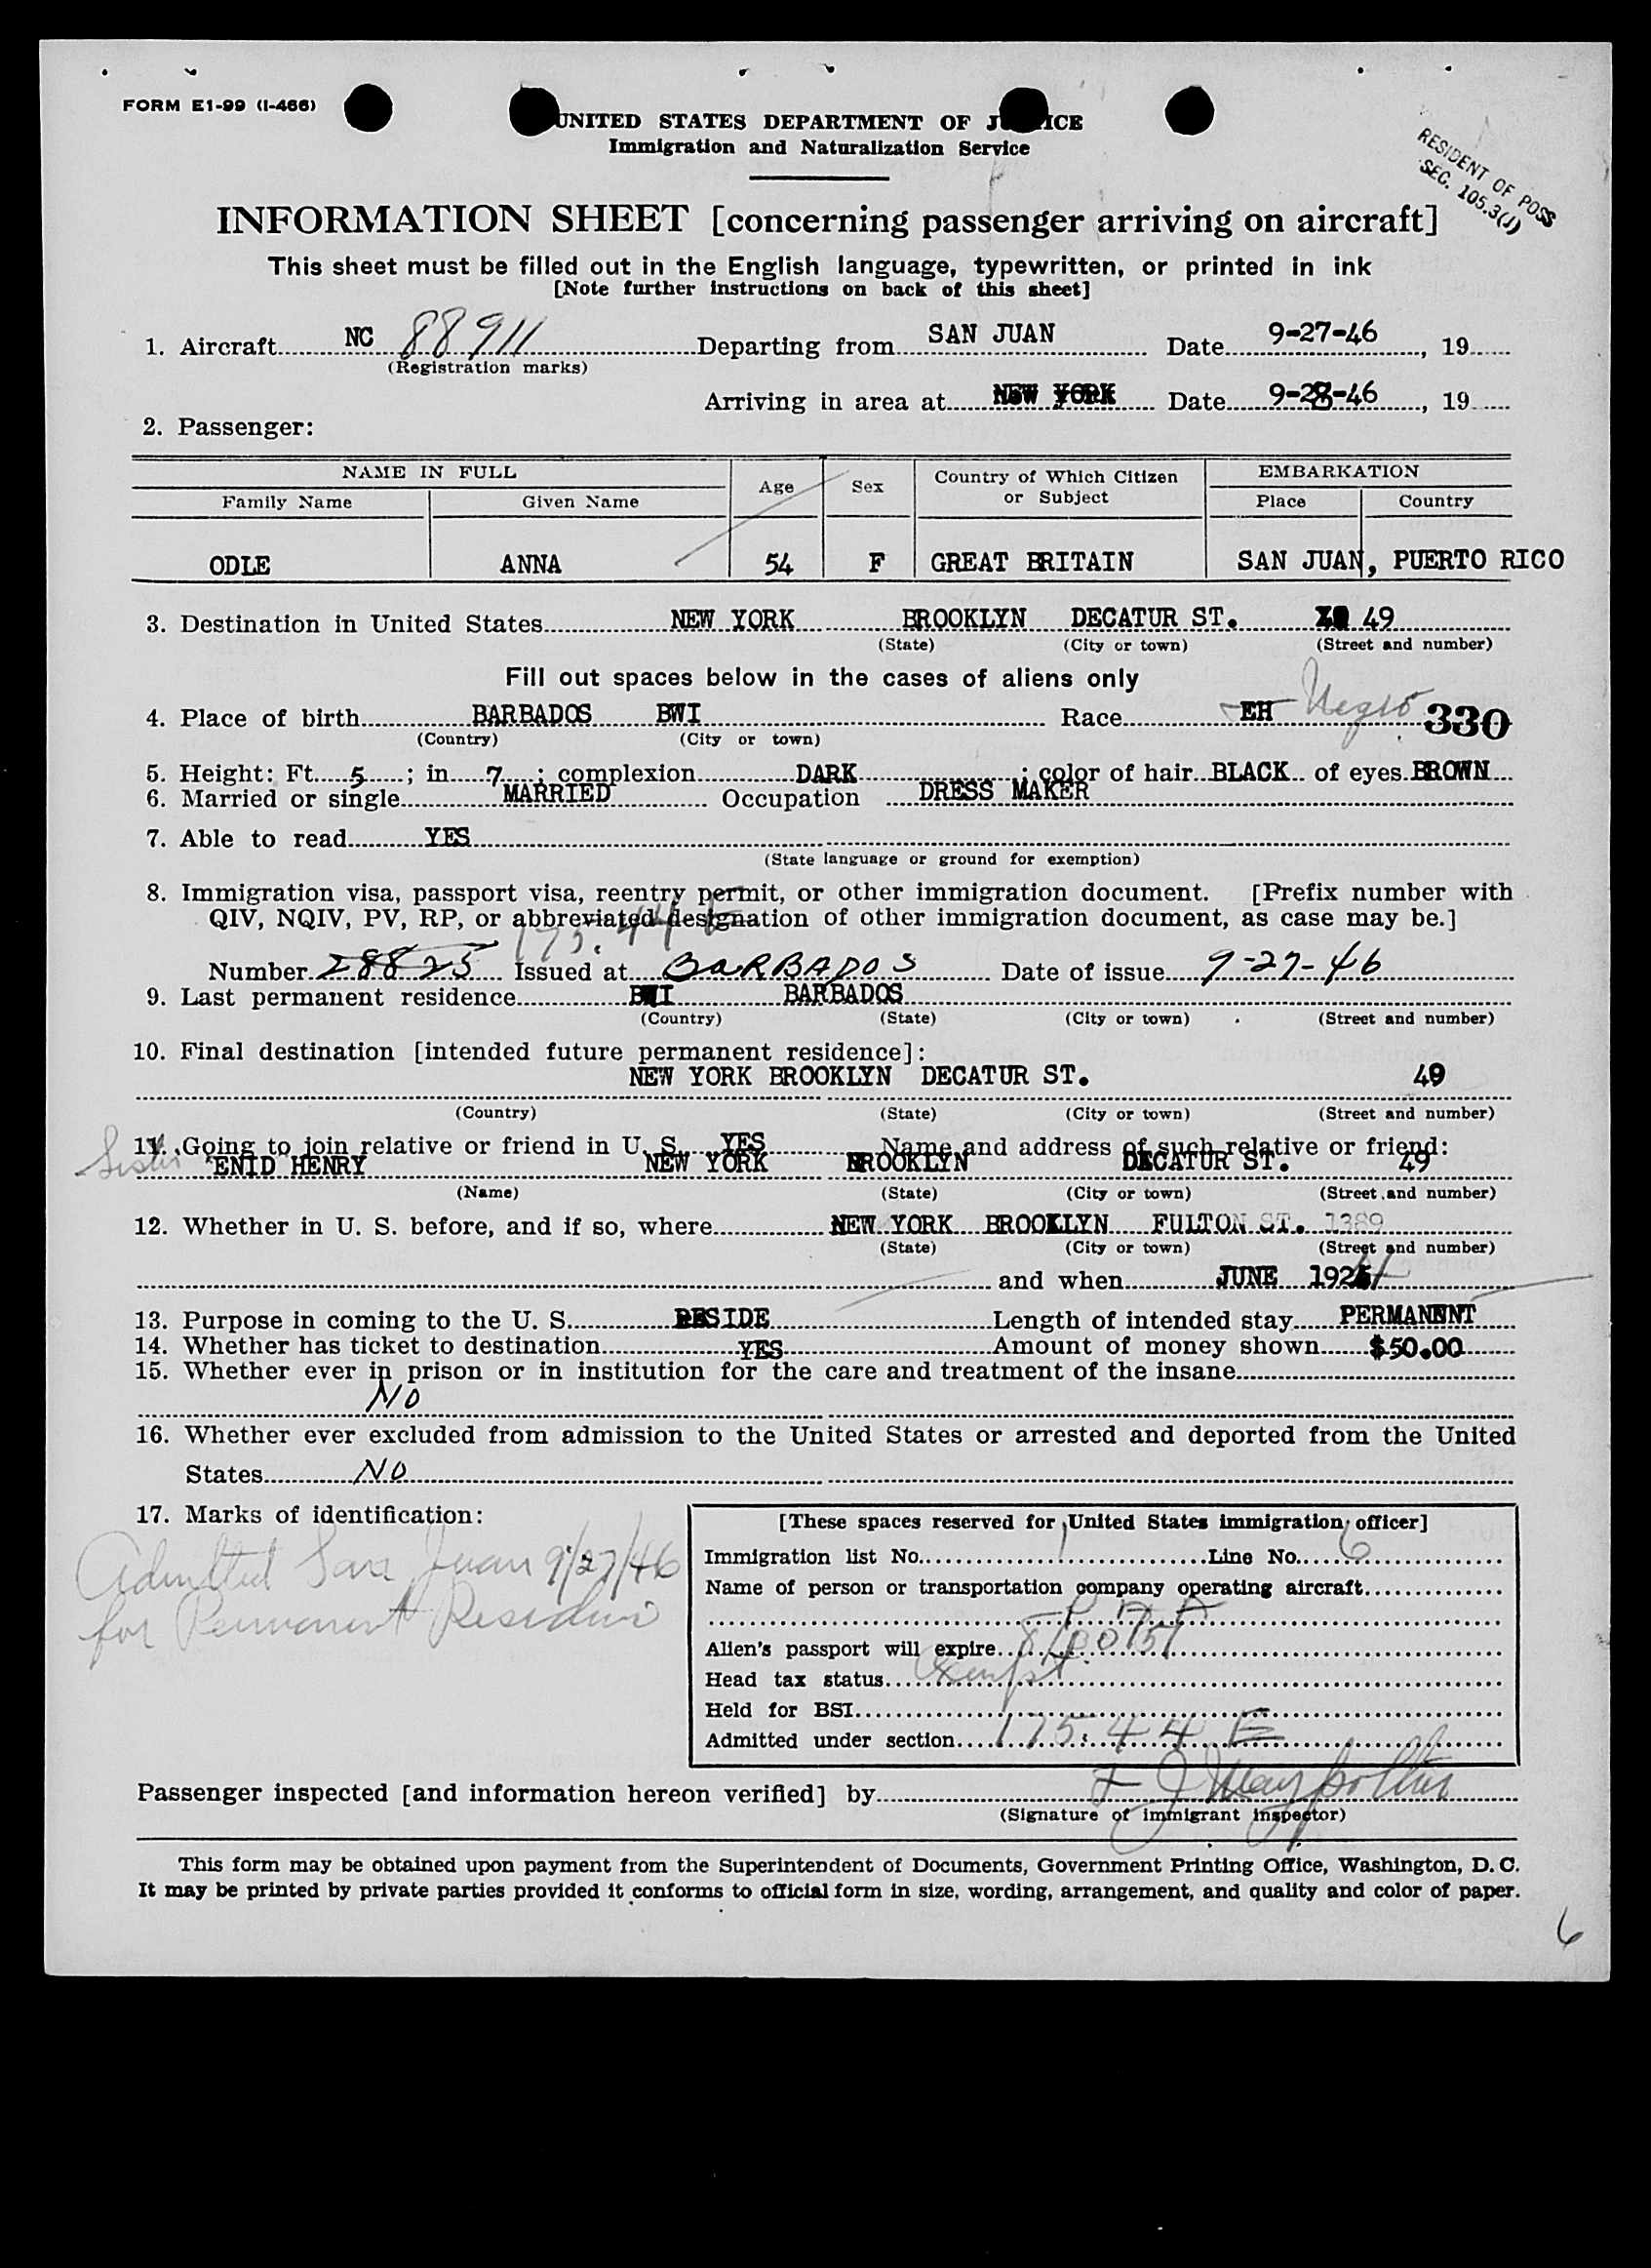 FORM E1-99 (I-466)
UNITED STATES DEPARTMENT OF JUSTICE
Immigration and Naturalization Service
RESIDENT OF POSS
SEC. 105.3(J)
INFORMATION SHEET [concerning passenger arriving on aircraft]
This sheet must be filled out in the English language, typewritten, or printed in ink
[Note further instructions on back of this sheet]
1. Aircraft NC 88911 Departing from SAN JUAN Date 9-27-46, 19
(Registration marks)
Arriving in area at NEW YORK Date 9-28-46, 19
2. Passenger:
NAME IN FULL Age Sex Country of Which Citizen or Subject EMBARKATION
Family Name Given Name Place Country
ODLE ANNA 54 F GREAT BRITAIN SAN JUAN, PUERTO RICO
3. Destination in United States NEW YORK BROOKLYN DECATUR ST. 49
(State) (City or town) (Street and number)
Fill out spaces below in the cases of aliens only
4. Place of birth BARBADOS BWI Race EH Negro 330
(Country) (City or town)
5. Height: Ft. 5; in. 7; complexion DARK; color of hair BLACK of eyes BROWN
6. Married or single MARRIED Occupation DRESS MAKER
7. Able to read YES
(State language or ground for exemption)
8. Immigration visa, passport visa, reentry permit, or other immigration document. [Prefix number with
QIV, NQIV, PV, RP, or abbreviated designation of other immigration document, as case may be.]
175.44E
Number 28825 Issued at BARBADOS Date of issue 9-27-46
9. Last permanent residence BWI BARBADOS
(Country) (State) (City or town) (Street and number)
10. Final destination [intended future permanent residence]:
NEW YORK BROOKLYN DECATUR ST. 49
(Country) (State) (City or town) (Street and number)
11. Going to join relative or friend in U. S. YES Name and address of such relative or friend:
Sister ENID HENRY NEW YORK BROOKLYN DECATUR ST. 49
(Name) (State) (City or town) (Street and number)
12. Whether in U. S. before, and if so, where NEW YORK BROOKLYN FULTON ST. 1389
(State) (City or town) (Street and number)
and when JUNE 192
13. Purpose in coming to the U. S. RESIDE Length of intended stay PERMANNNT
14. Whether has ticket to destination YES Amount of money shown $50.00
15. Whether ever in prison or in institution for the care and treatment of the insane
NO
16. Whether ever excluded from admission to the United States or arrested and deported from the United
States NO
17. Marks of identification:
Admitted San Juan 9/27/46
for Permanent Residence
[These spaces reserved for United States immigration officer]
Immigration list No. 1 Line No. 6
Name of person or transportation company operating aircraft
P A A
Alien's passport will expire 8/30/51
Head tax status Exempt
Held for BSI
Admitted under section 175.44 E
Passenger inspected [and information hereon verified] by
(Signature of immigrant inspector)
This form may be obtained upon payment from the Superintendent of Documents, Government Printing Office, Washington, D. C.
It may be printed by private parties provided it conforms to official form in size, wording, arrangement, and quality and color of paper.
6